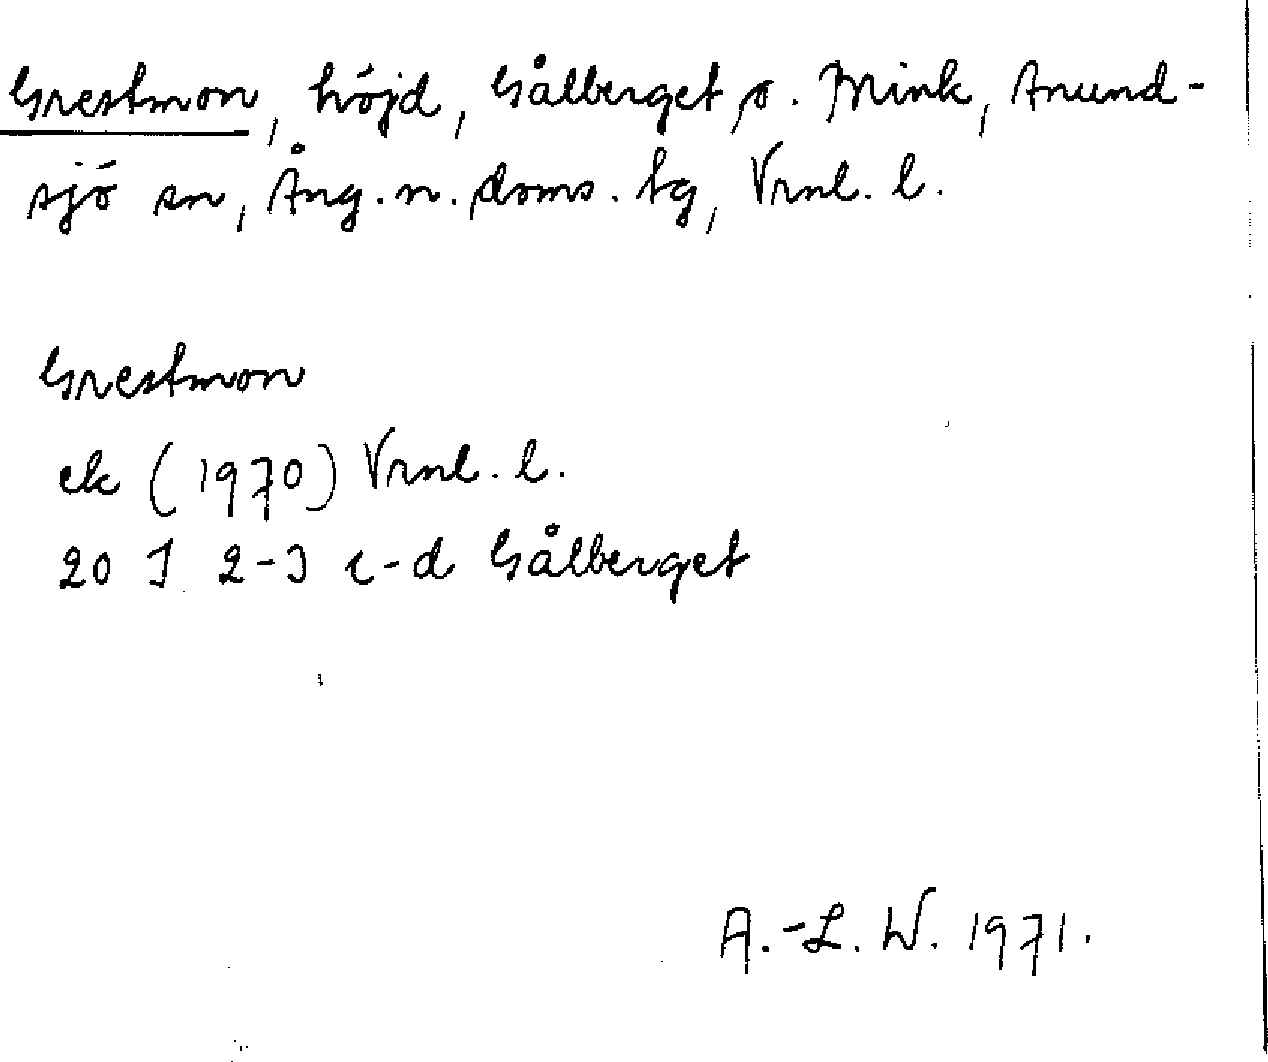 Grestmon, höjd, Gålberget o. Mink, Anund-
sjö sn, Ång. n. doms. tg, Vrnl. l.
Grestmon
ek (1970) Vrnl. l.
20 I 2-3 c-d Gålberget
A.-L. W. 1971.